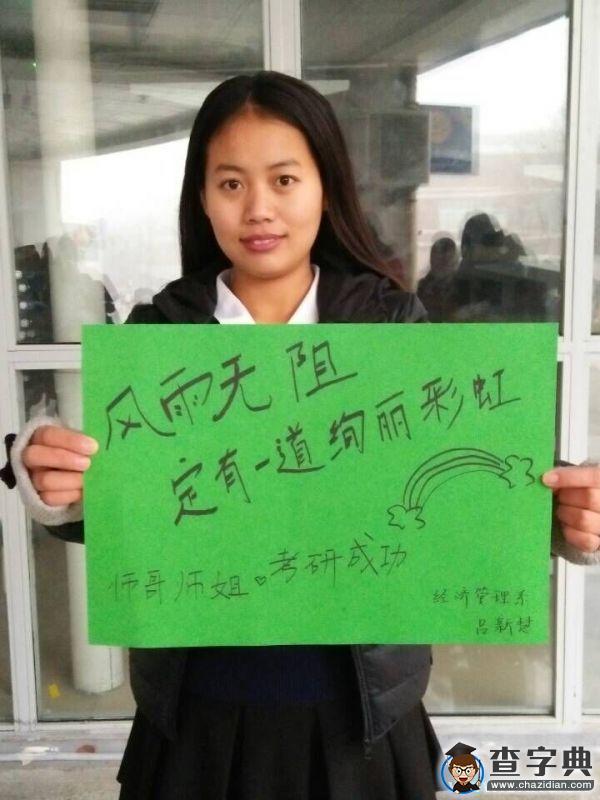 风雨无阻
定有一道绚丽彩虹
师哥师姐。考研成功
经济管理系
吕新慧
查字典
www.chazidian.com